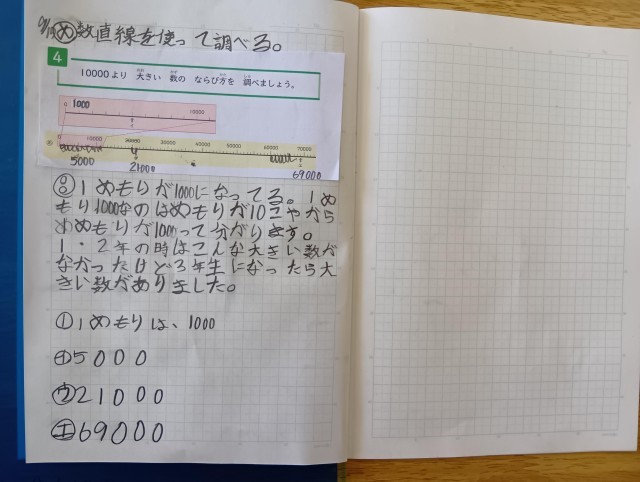 9/19 大 数直線を使って調べる。
4 10000より 大きい 数の ならび方を 調べましょう。
0 1000 10000
0 10000 20000 30000 40000 50000 60000 70000
5000 21000 69000
1めもりが1000になってる。1め
もり1000なのはめもりが10こやから
1めもりが1000って分かります。
1・2年の時はこんな大きい数が
なかったけど3年生になったら大
きい数がありました。
1めもりは、1000
5000
ウ 21000
エ 69000